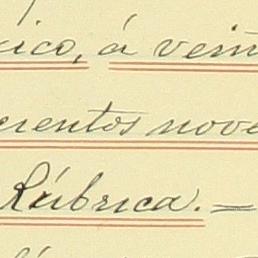 xico, á vein
cientos nove
Rúbrica. =